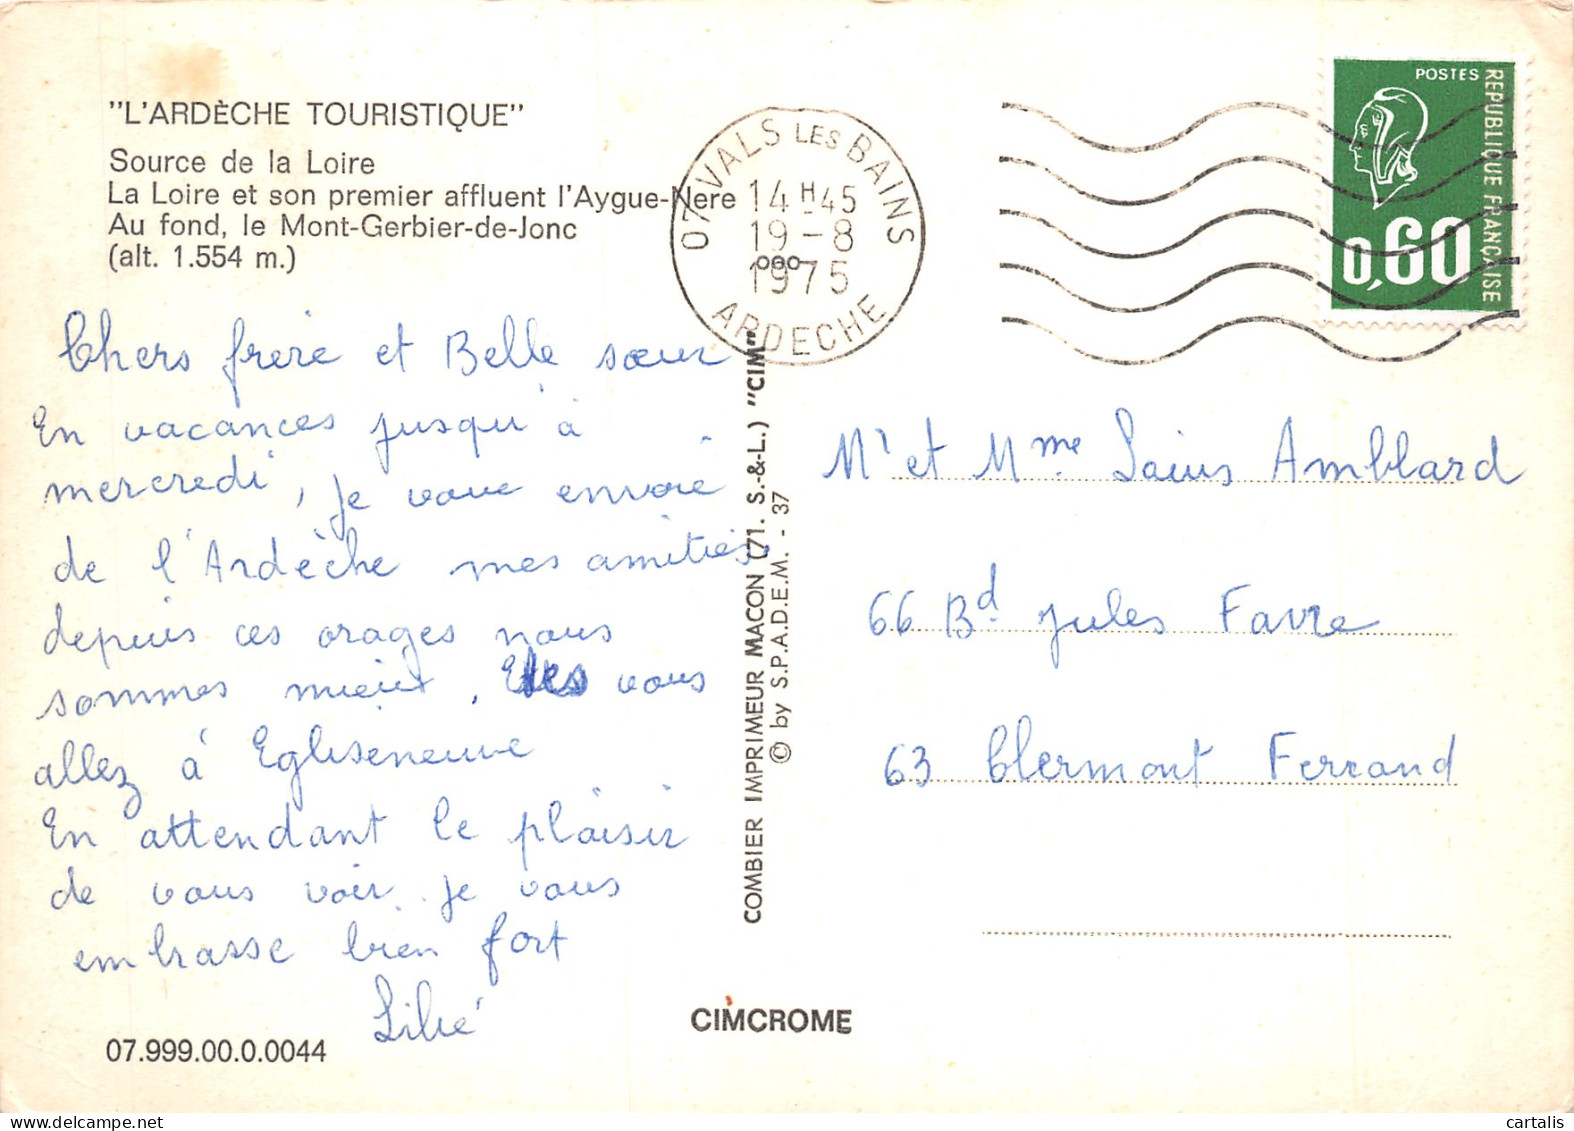 "L'ARDÈCHE TOURISTIQUE"
Source de la Loire
La Loire et son premier affluent l'Aygue-Nere
Au fond, le Mont-Gerbier-de-Jonc
(alt. 1.554 m.)
07 VALS LES BAINS
14 H 45
19 - 8
1975
ARDECHE
POSTES
REPUBLIQUE FRANÇAISE
0,60
Chers frère et Belle sœur
En vacances jusqu'à
mercredi, je vous envoie
de l'Ardèche mes amitiés
depuis ces orages nous
sommes mieux, vous
allez à Egliseneuve
En attendant le plaisir
de vous voir je vous
embrasse bien fort
07.999.00.0.0044
COMBIER IMPRIMEUR MACON (71. S.-&-L.) "CIM"
© by S.P.A.D.E.M. - 37
CIMCROME
Mr et Mme Amblard
66 Bd Jules Favre
63 Clermont Ferrand
cartalis